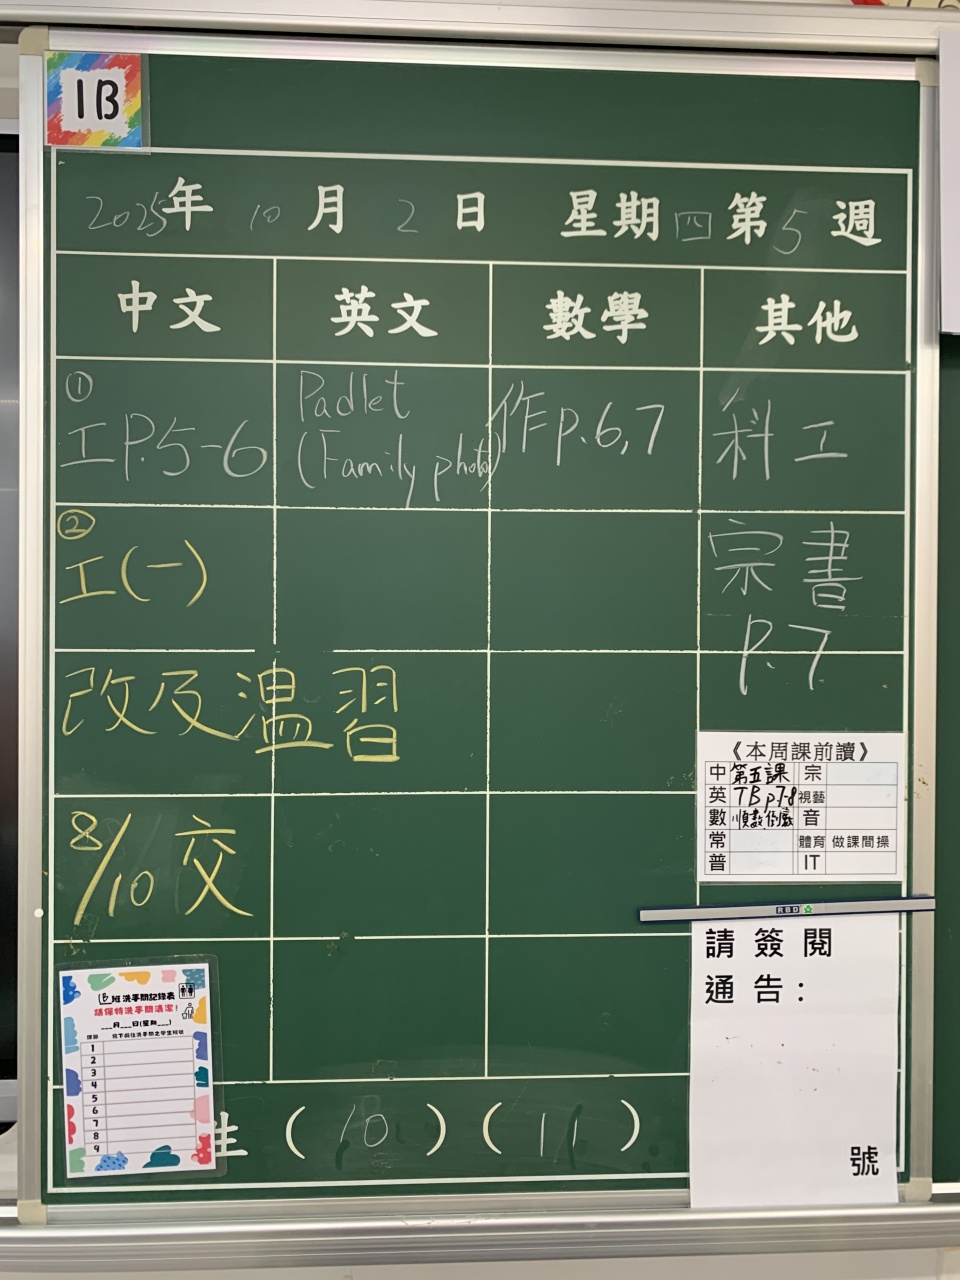 1B
2025年 10月 2日 星期四 第5週
中文 英文 數學 其他
①
工P.5-6
Padlet
(Family photo)
作p.6,7
科工
②
工(一)
宗書
P.7
改及溫習
8/10 交
《本周課前讀》
中 第五課 宗
英 TB p7-8 視藝
數 順數、倒數 音
常 體育 做課間操
普 IT
RBD
請簽閱
通告:
號
1B班洗手間記錄表
請保持洗手間清潔!
___月___日(星期___)
課節 寫下前往洗手間之學生班號
1
2
3
4
5
6
7
8
9
生 (10) (11)